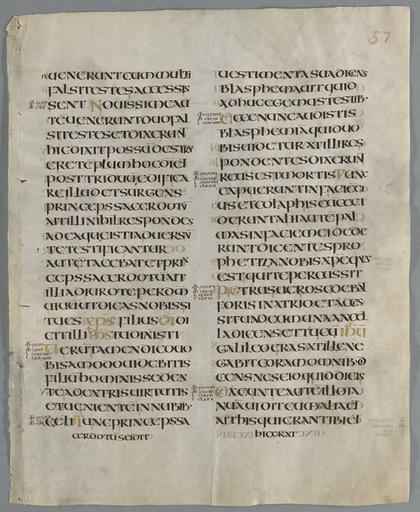 57
UENERUNTCUMMULTI
FALSITESTESACCESSIS
SENT NOUISSIMEAU
TEUENERUNTDUOFAL
SITESTESETDIXERUN
HICDIXITPOSSUDESTRU
ERETEPLUMHOCDEI
POSTTRIDUUREAEDIFICA
REILLUDETSURGENS
PRINCEPSSACERDOTU
AITILLINIHILRESPONDES
ADEAQUEISTIADUERSU
TETESTIFICANTUR
AUTETACEBATETPRIN
CEPSSACERDOTUAIT
ILLIADIUROTEPERDM
UIUUUTDICASNOBISSI
TUES XPS FILIUS DI DI
CITILLI IHS TUDIXISTI
UERUTAMENDICOUO
BISAMODOUIDEBITIS
FILIUHOMINISSEDEN
TEADEXTRISUIRTUTIS
ETUENIENTEINNUBIB·
CELI TUNCPRINCEPSSA
CERDOTUSCIDIT
UESTIMENTASUADICENS
BLASPHEMAUITQUID
ADHUCEGEMUSTESTIB·
ECCENUNCAUDISTIS
BLASPHEMIAQUIDUO
BISUIDETURATILLIRES
PONDENTESDIXERUN
REUSESTMORTIS TUNC
EXPUERUNTINFACIEEI
USETCOLAPHISEUCECI
DERUNTALIIAUTEPAL
MASINFACIEMEIDEDE
RUNTDICENTESPRO
PHETIZANOBISXPEQUIS
ESTQUITEPERCUSSIT
PETRUSUEROSEDEBAT
FORISINATRIOETACCES
SITADEUMUNAANCIL
LADICENSETTUCU IHU
GALILEOERASATILLENE
GABITCORAMOMNIB·DI
CENSNESCIOQUIDDICIS
EXEUNTEAUTEILLOIA
NUAUIDITEUMALIAET
AITHISQUIERANTIBIET
HICERAT